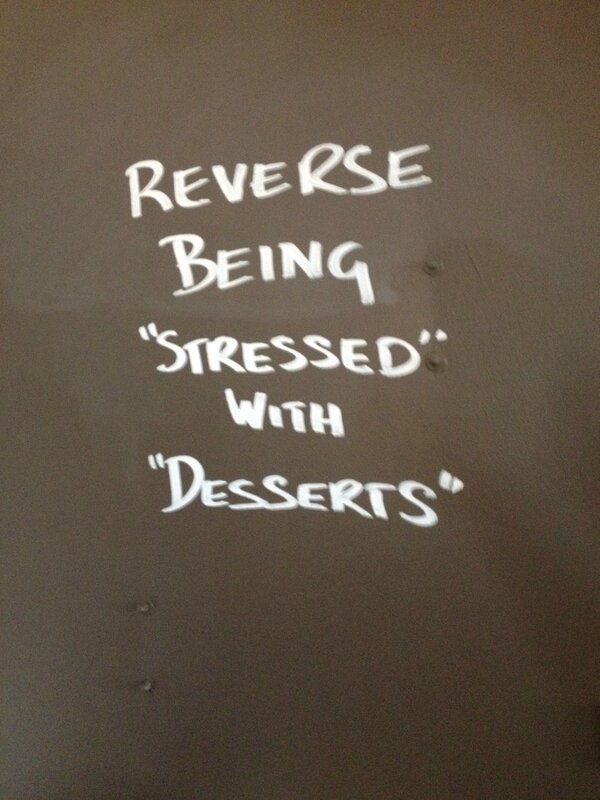 REVERSE
BEING
"STRESSED"
WITH
"DESSERTS"